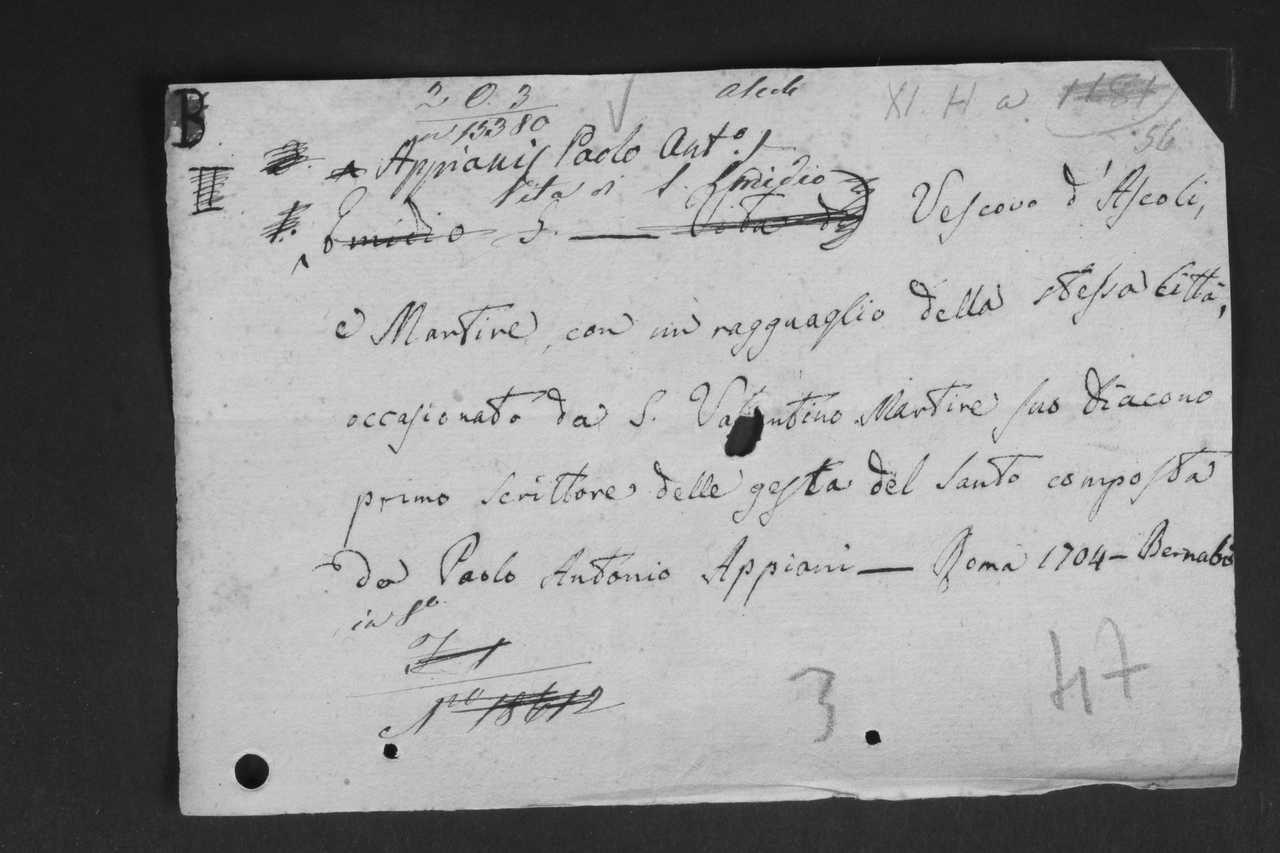 B
III
2 0. 3
13380
XI. H a. 1181
56
Appianis Paolo Ant.º
Vita di S. Emidio
Emidio S. — Vita di Vescovo d'Ascoli,
e Martire, con un ragguaglio della stessa Città,
occasionato da S. Valentino Martire suo Diacono
primo scrittore delle gesta del Santo composta
da Paolo Antonio Appiani — Roma 1704 — Bernabò
in 8º
Nº 18612
3
47